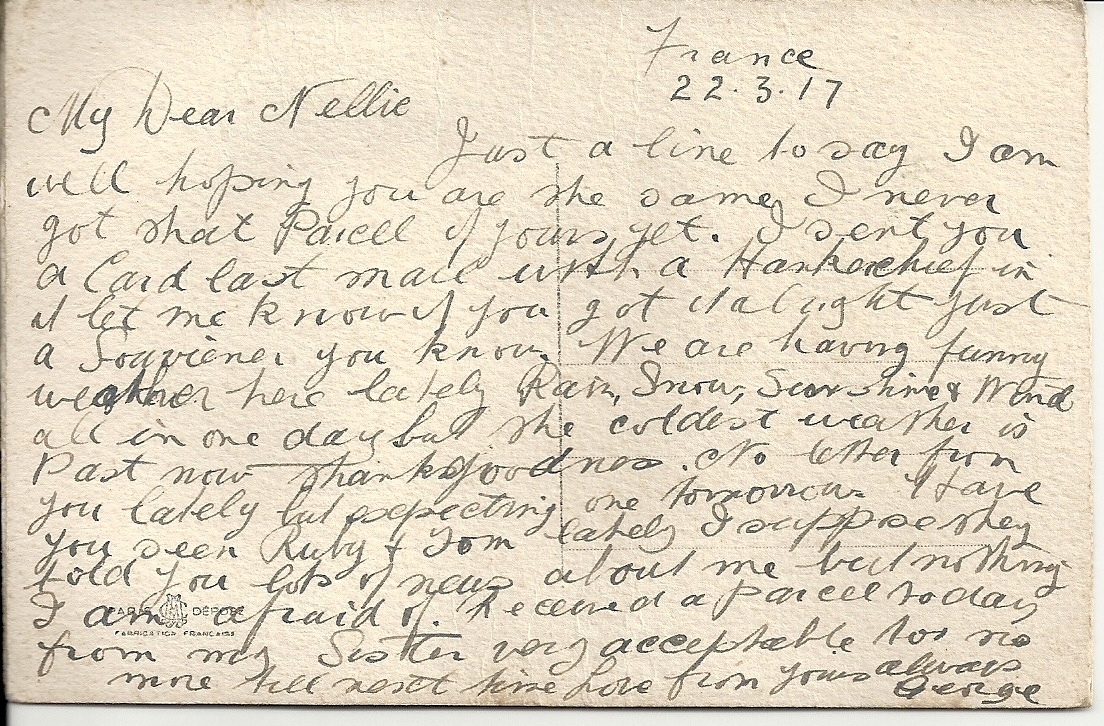 France
22.3.17
My Dear Nellie
Just a line to say I am
well hoping you are the same, I never
got that Parcell of yours, yet. I sent you
a Card last mail with a Hankerchief in
it let me know if you got it alright Just
a Souviener you know. We are having funny
weather here lately Rain, Snow, Sunshine & Wind
all in one day but the coldest weather is
Past now thank goodness. No letter from
you lately but expecting one tomorrow. Have
you seen Ruby & Tom lately I suppose they
told you lots of news about me but nothing
I am afraid of. Received a parcel today
PARIS DÉPOSÉ
FABRICATION FRANÇAISE
from my Sister very acceptable too no
more till next time Love from yours always
George